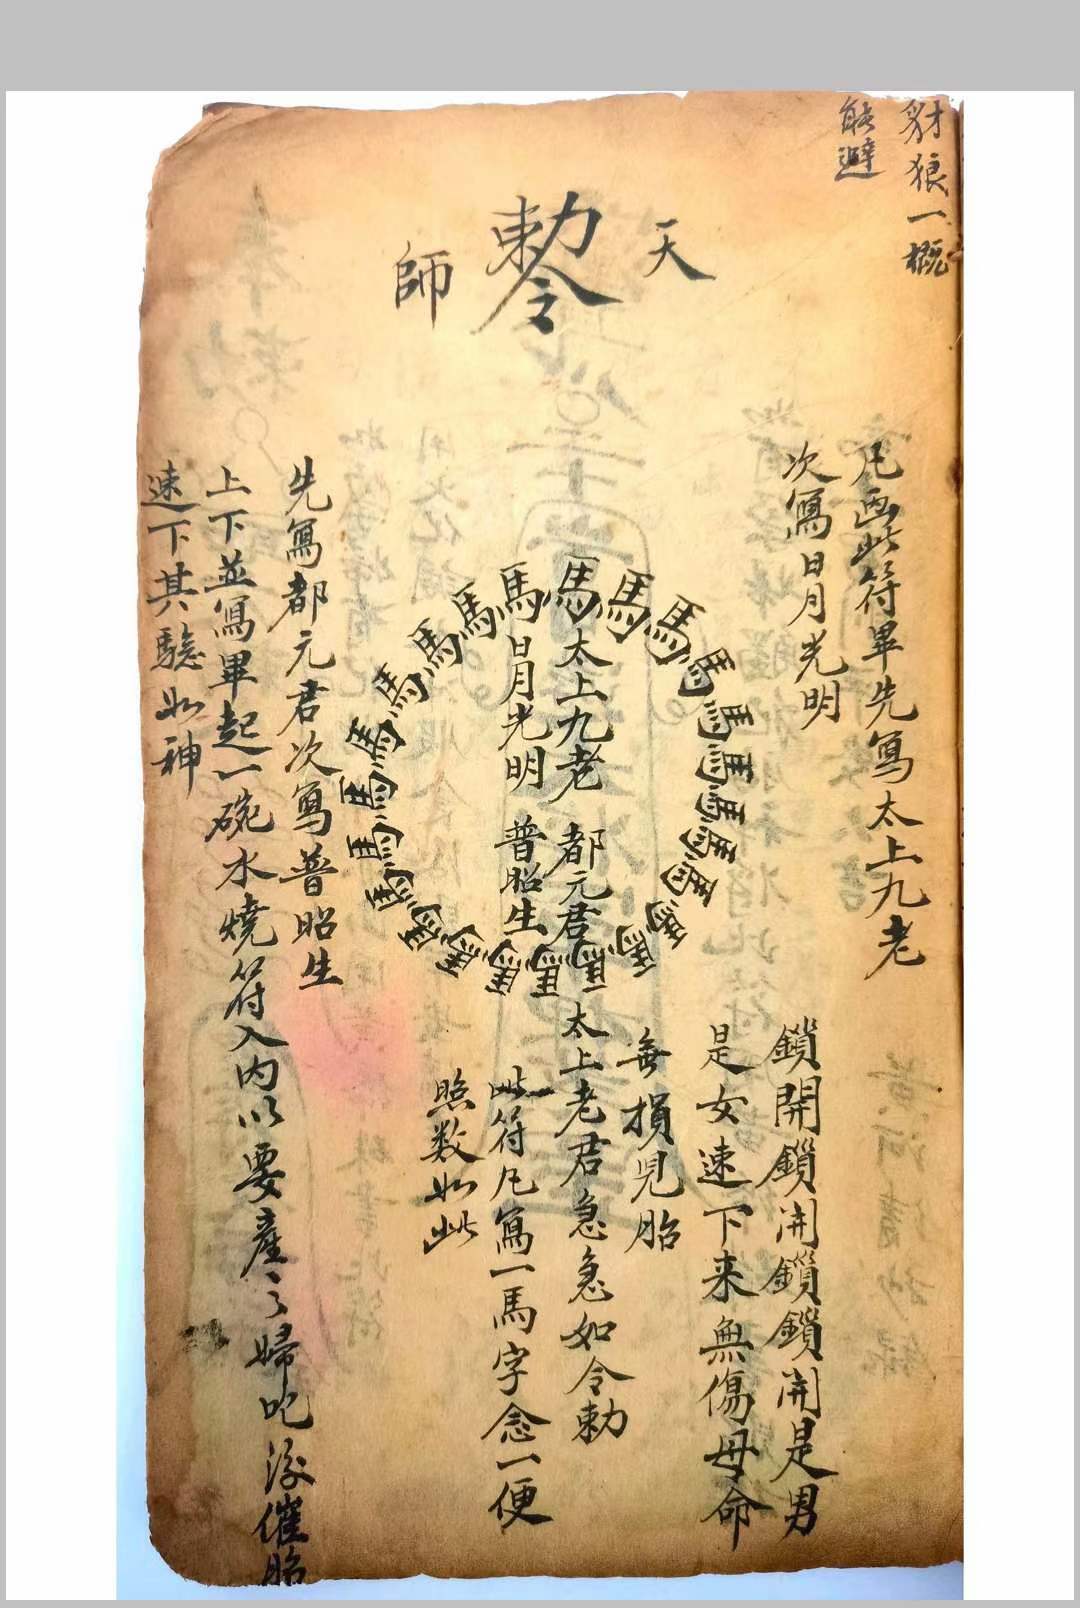 豺狼一概
能避
天
勅令
師
凡画此符畢先寫太上九老
次寫日月光明
鎖開鎖開鎖鎖開是男
是女速下来無傷母命
無損児胎
馬馬馬馬馬馬馬馬馬馬馬馬馬馬馬馬馬馬馬馬馬馬馬馬馬馬馬馬
太上九老 都元君 太上老君急急如令勅
日月光明 普昭生
此符凡寫一馬字念一便
照数如此
先寫都元君次寫普昭生
上下並寫畢起一碗水燒符入内以要產之婦吃後催胎
速下其驗如神